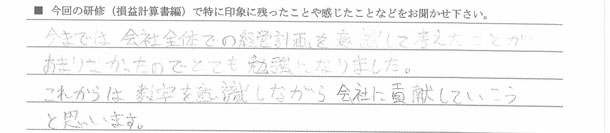 ■ 今回の研修（損益計算書編）で特に印象に残ったことや感じたことなどをお聞かせ下さい。
今までは会社全体での経営計画を意識して考えたことが
あまりなかったのでとても勉強になりました。
これからは数字を意識しながら会社に貢献していこう
と思います。